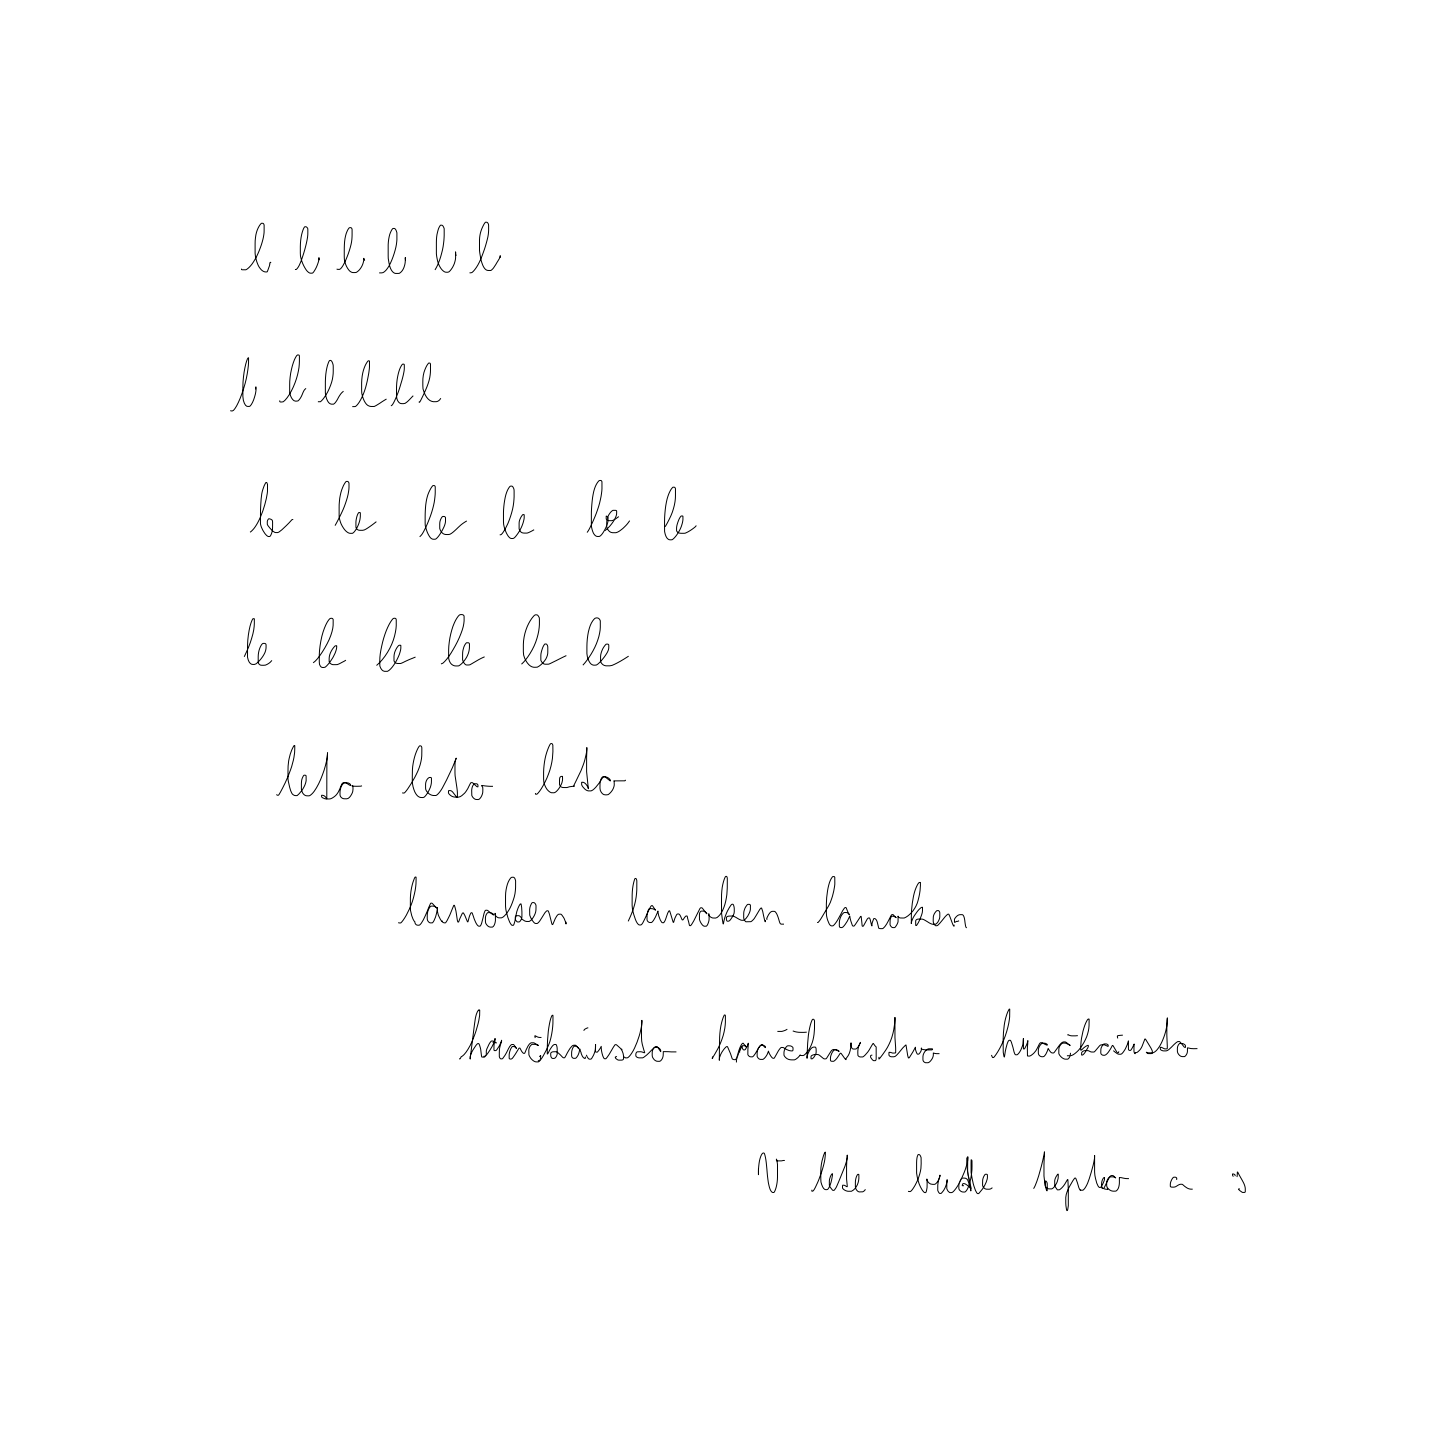 l l l l l l
l l l l l l
le le le le le le
le le le le le le
leto leto leto
lamoken lamoken lamoken
hračkársto hráčkarstvo hračkársto
V lete bude teplo a